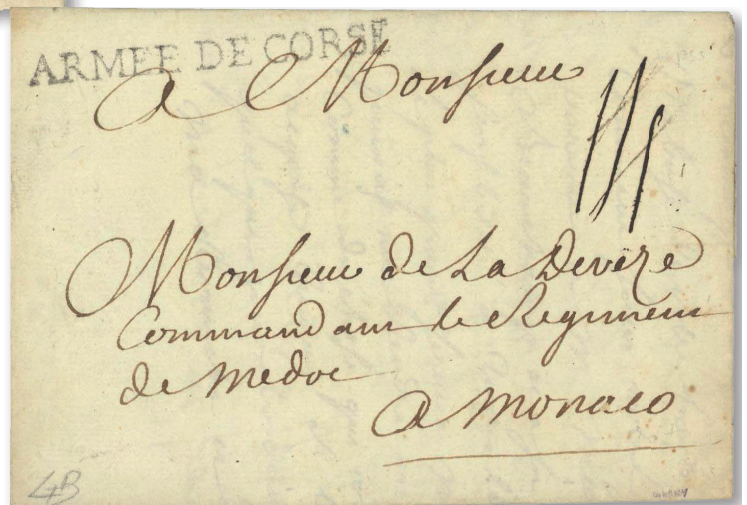 ARMEE DE CORSE
A Monsieur
Monsieur de La Deveze
Commandant le Regiment
de Medoc
A Monaco
4B